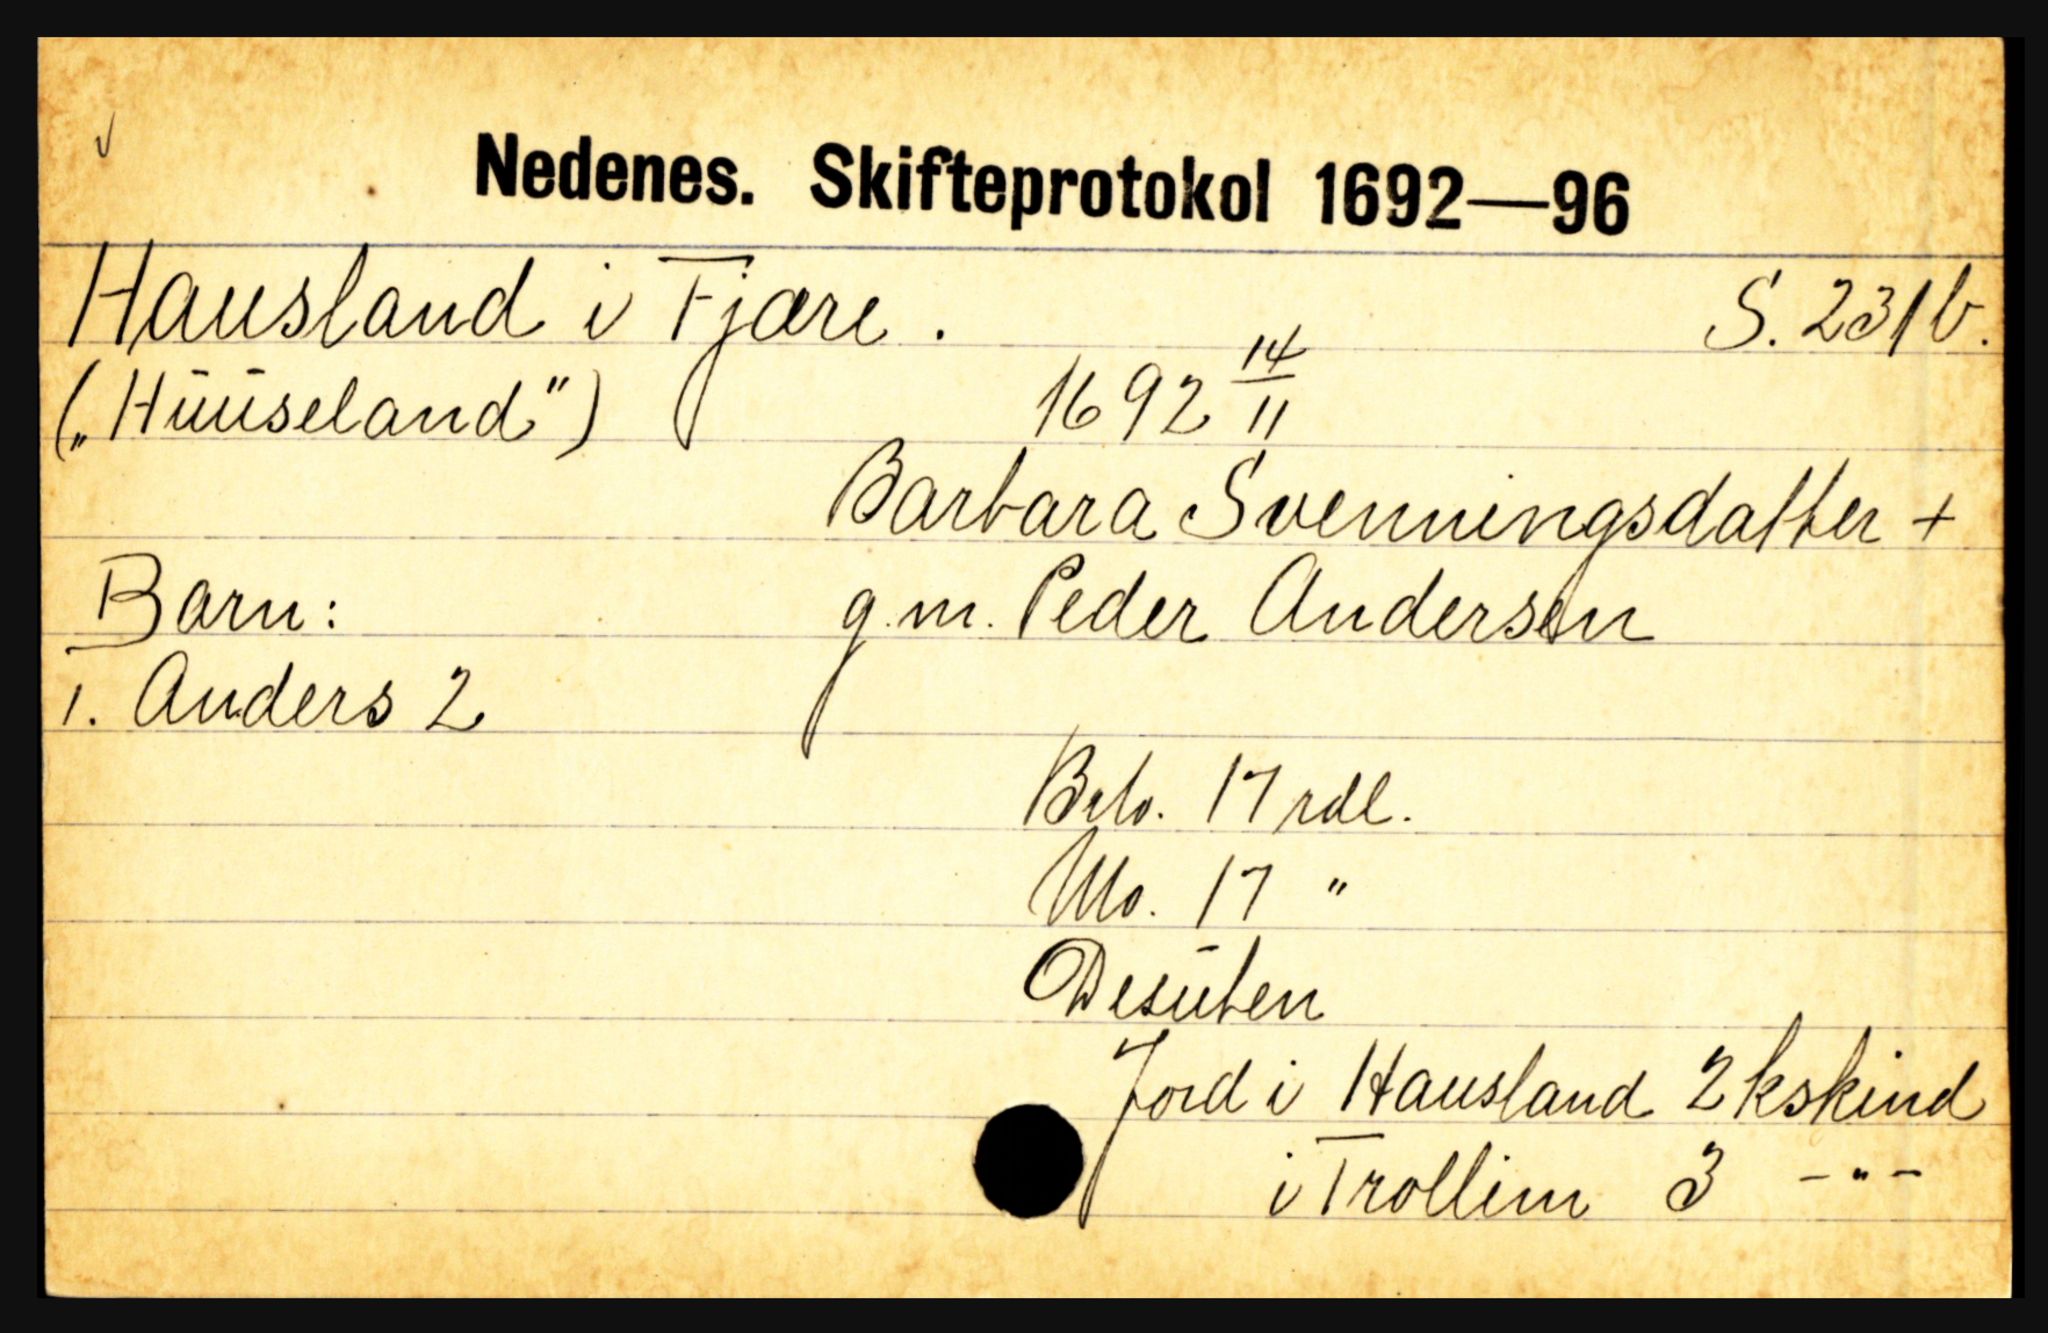 Nedenes. Skifteprotokol 1692—96
Hausland i Fjære. S. 231b.
("Huuseland") 1692 14/11
Barbara Svenningsdatter +
Barn: g.m. Peder Andersen
1. Anders 2
Brto. 17 rdl.
No. 17 "
Desuten
Jord i Hausland 2 kskind
i Trollim 3 -"-